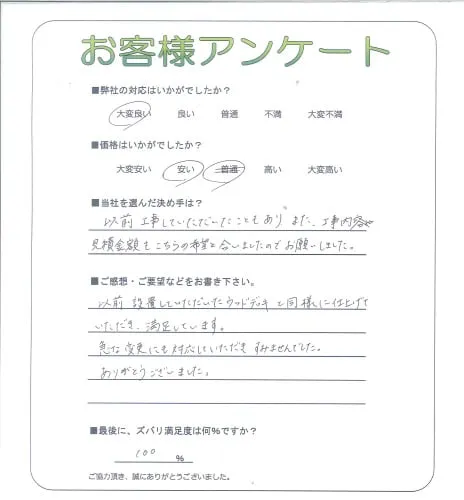 お客様アンケート
■弊社の対応はいかがでしたか?
大変良い 良い 普通 不満 大変不満
■価格はいかがでしたか?
大変安い 安い 普通 高い 大変高い
■当社を選んだ決め手は?
以前工事していただいたこともあり また、工事内容や
見積金額もこちらの希望と合いましたのでお願いしました。
■ご感想・ご要望などをお書き下さい。
以前設置していただいたウッドデッキと同様に仕上げて
いただき、満足しています。
急な変更にも対応していただき すみませんでした。
ありがとうございました。
■最後に、ズバリ満足度は何%ですか?
100 %
ご協力頂き、誠にありがとうございました。